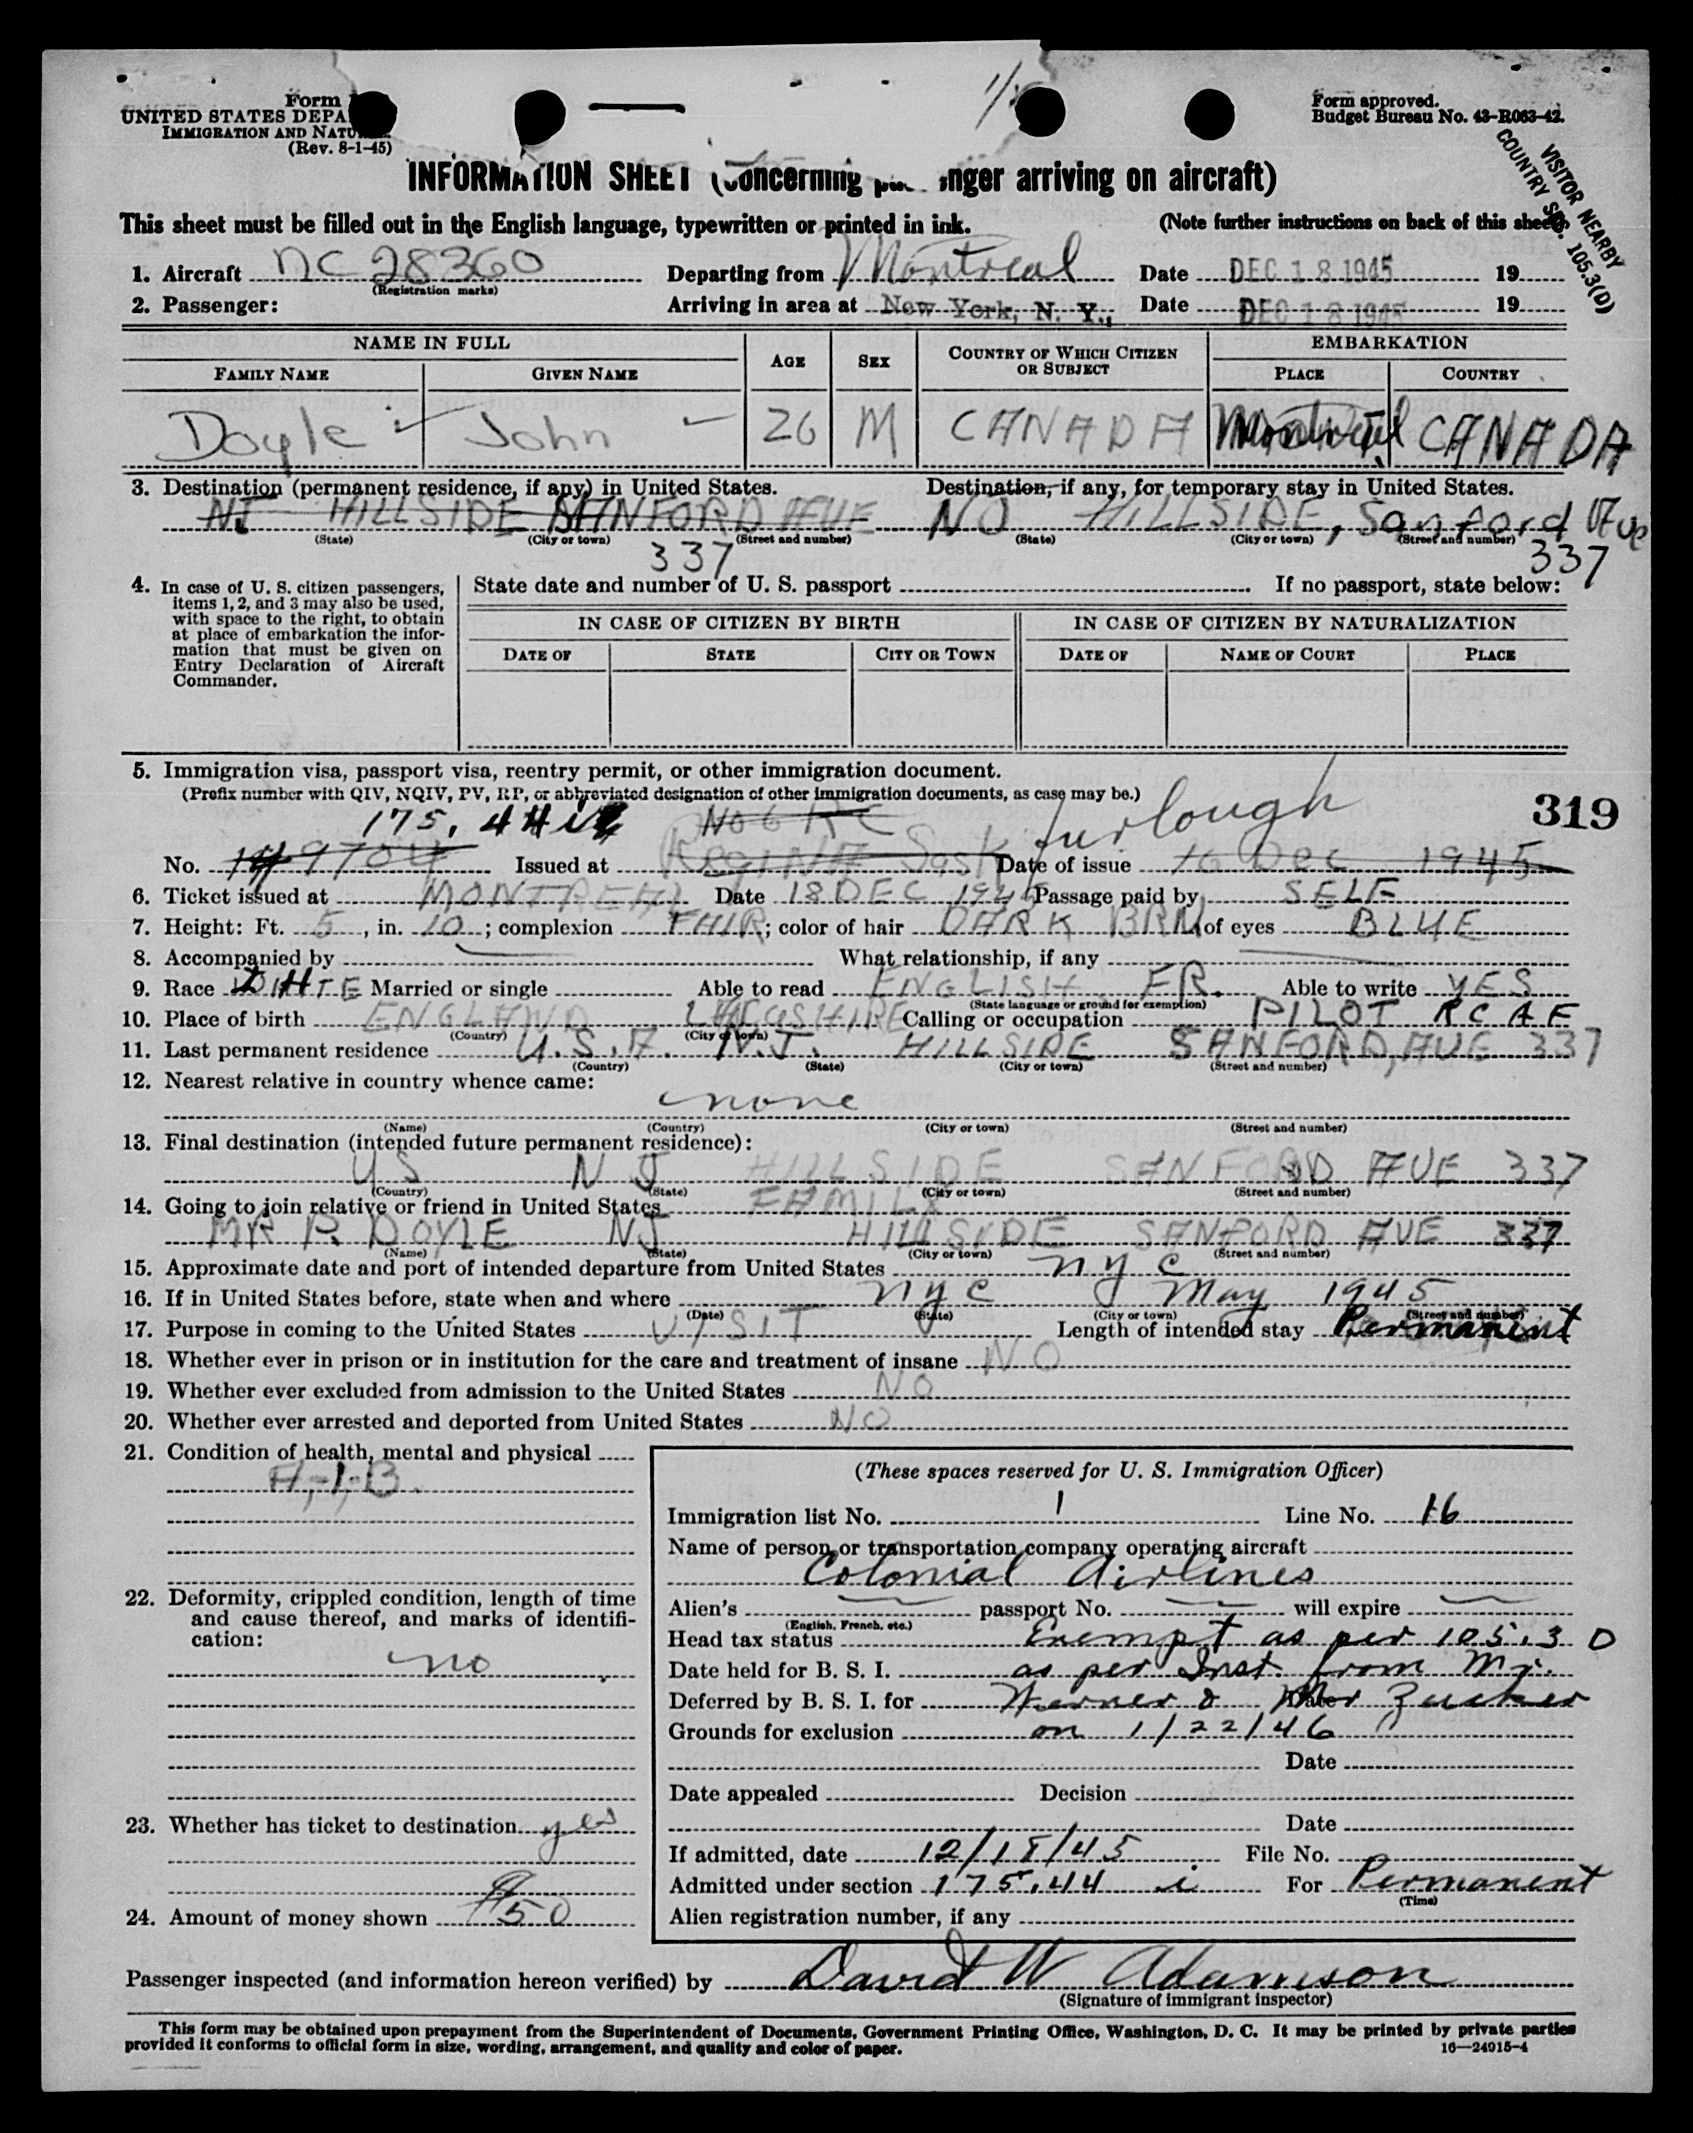 Form
UNITED STATES DEPA
IMMIGRATION AND NATU
(Rev. 8-1-45)
Form approved.
Budget Bureau No. 43-R063-42.
VISITOR NEARBY
COUNTRY SEC. 105.3(D)
INFORMATION SHEET (Concerning passenger arriving on aircraft)
This sheet must be filled out in the English language, typewritten or printed in ink. (Note further instructions on back of this sheet)
1. Aircraft NC 28360 Departing from Montreal Date DEC 18 1945 19
(Registration marks)
2. Passenger: Arriving in area at New York, N. Y., Date DEC 18 1945 19
NAME IN FULL AGE SEX COUNTRY OF WHICH CITIZEN OR SUBJECT EMBARKATION
FAMILY NAME GIVEN NAME PLACE COUNTRY
Doyle John 26 M CANADA Montreal CANADA
3. Destination (permanent residence, if any) in United States. Destination, if any, for temporary stay in United States.
NJ HILLSIDE SANFORD AVE NO HILLSIDE, Sanford Ave
(State) (City or town) (Street and number) (State) (City or town) (Street and number)
337 337
4. In case of U. S. citizen passengers, items 1, 2, and 3 may also be used, with space to the right, to obtain at place of embarkation the information that must be given on Entry Declaration of Aircraft Commander.
State date and number of U. S. passport If no passport, state below:
IN CASE OF CITIZEN BY BIRTH IN CASE OF CITIZEN BY NATURALIZATION
DATE OF STATE CITY OR TOWN DATE OF NAME OF COURT PLACE
5. Immigration visa, passport visa, reentry permit, or other immigration document.
(Prefix number with QIV, NQIV, PV, RP, or abbreviated designation of other immigration documents, as case may be.)
319
175. 44 No 6 RC furlough
No. 9704 Issued at Regina Sask Date of issue 16 Dec 1945
6. Ticket issued at MONTREAL Date 18 DEC 1945 Passage paid by SELF
7. Height: Ft. 5, in. 10; complexion FAIR; color of hair DARK BRN of eyes BLUE
8. Accompanied by What relationship, if any
9. Race WHITE Married or single Able to read ENGLISH FR. Able to write YES
(State language or ground for exemption)
10. Place of birth ENGLAND Calling or occupation PILOT RCAF
(Country) (City or town)
11. Last permanent residence U.S.A. N.J. HILLSIDE SANFORD, AVE 337
(Country) (State) (City or town) (Street and number)
12. Nearest relative in country whence came:
none
(Name) (Country) (City or town) (Street and number)
13. Final destination (intended future permanent residence):
US NJ HILLSIDE SANFORD AVE 337
(Country) (State) (City or town) (Street and number)
14. Going to join relative or friend in United States FAMILY
MR P. DOYLE NJ HILLSIDE SANFORD AVE 337
(Name) (State) (City or town) (Street and number)
15. Approximate date and port of intended departure from United States NYC
16. If in United States before, state when and where NYC May 1945
(Date) (State) (City or town) (Street and number)
17. Purpose in coming to the United States VISIT Length of intended stay Permanent
18. Whether ever in prison or in institution for the care and treatment of insane NO
19. Whether ever excluded from admission to the United States NO
20. Whether ever arrested and deported from United States NO
21. Condition of health, mental and physical
A-1-B.
22. Deformity, crippled condition, length of time and cause thereof, and marks of identification:
no
23. Whether has ticket to destination yes
24. Amount of money shown $50
(These spaces reserved for U. S. Immigration Officer)
Immigration list No. 1 Line No. 16
Name of person or transportation company operating aircraft
Colonial Airlines
Alien's passport No. will expire
(English, French, etc.)
Head tax status Exempt as per 105.3 D
Date held for B. S. I. as per Inst. from Mr.
Deferred by B. S. I. for Werner & Mr Zucker Date
Grounds for exclusion on 1/22/46
Date
Date appealed Decision
Date
If admitted, date 12/18/45 File No.
Admitted under section 175.44 i For Permanent
(Time)
Alien registration number, if any
Passenger inspected (and information hereon verified) by David W Adamson
(Signature of immigrant inspector)
This form may be obtained upon prepayment from the Superintendent of Documents, Government Printing Office, Washington, D. C. It may be printed by private parties
provided it conforms to official form in size, wording, arrangement, and quality and color of paper. 16—24915-4